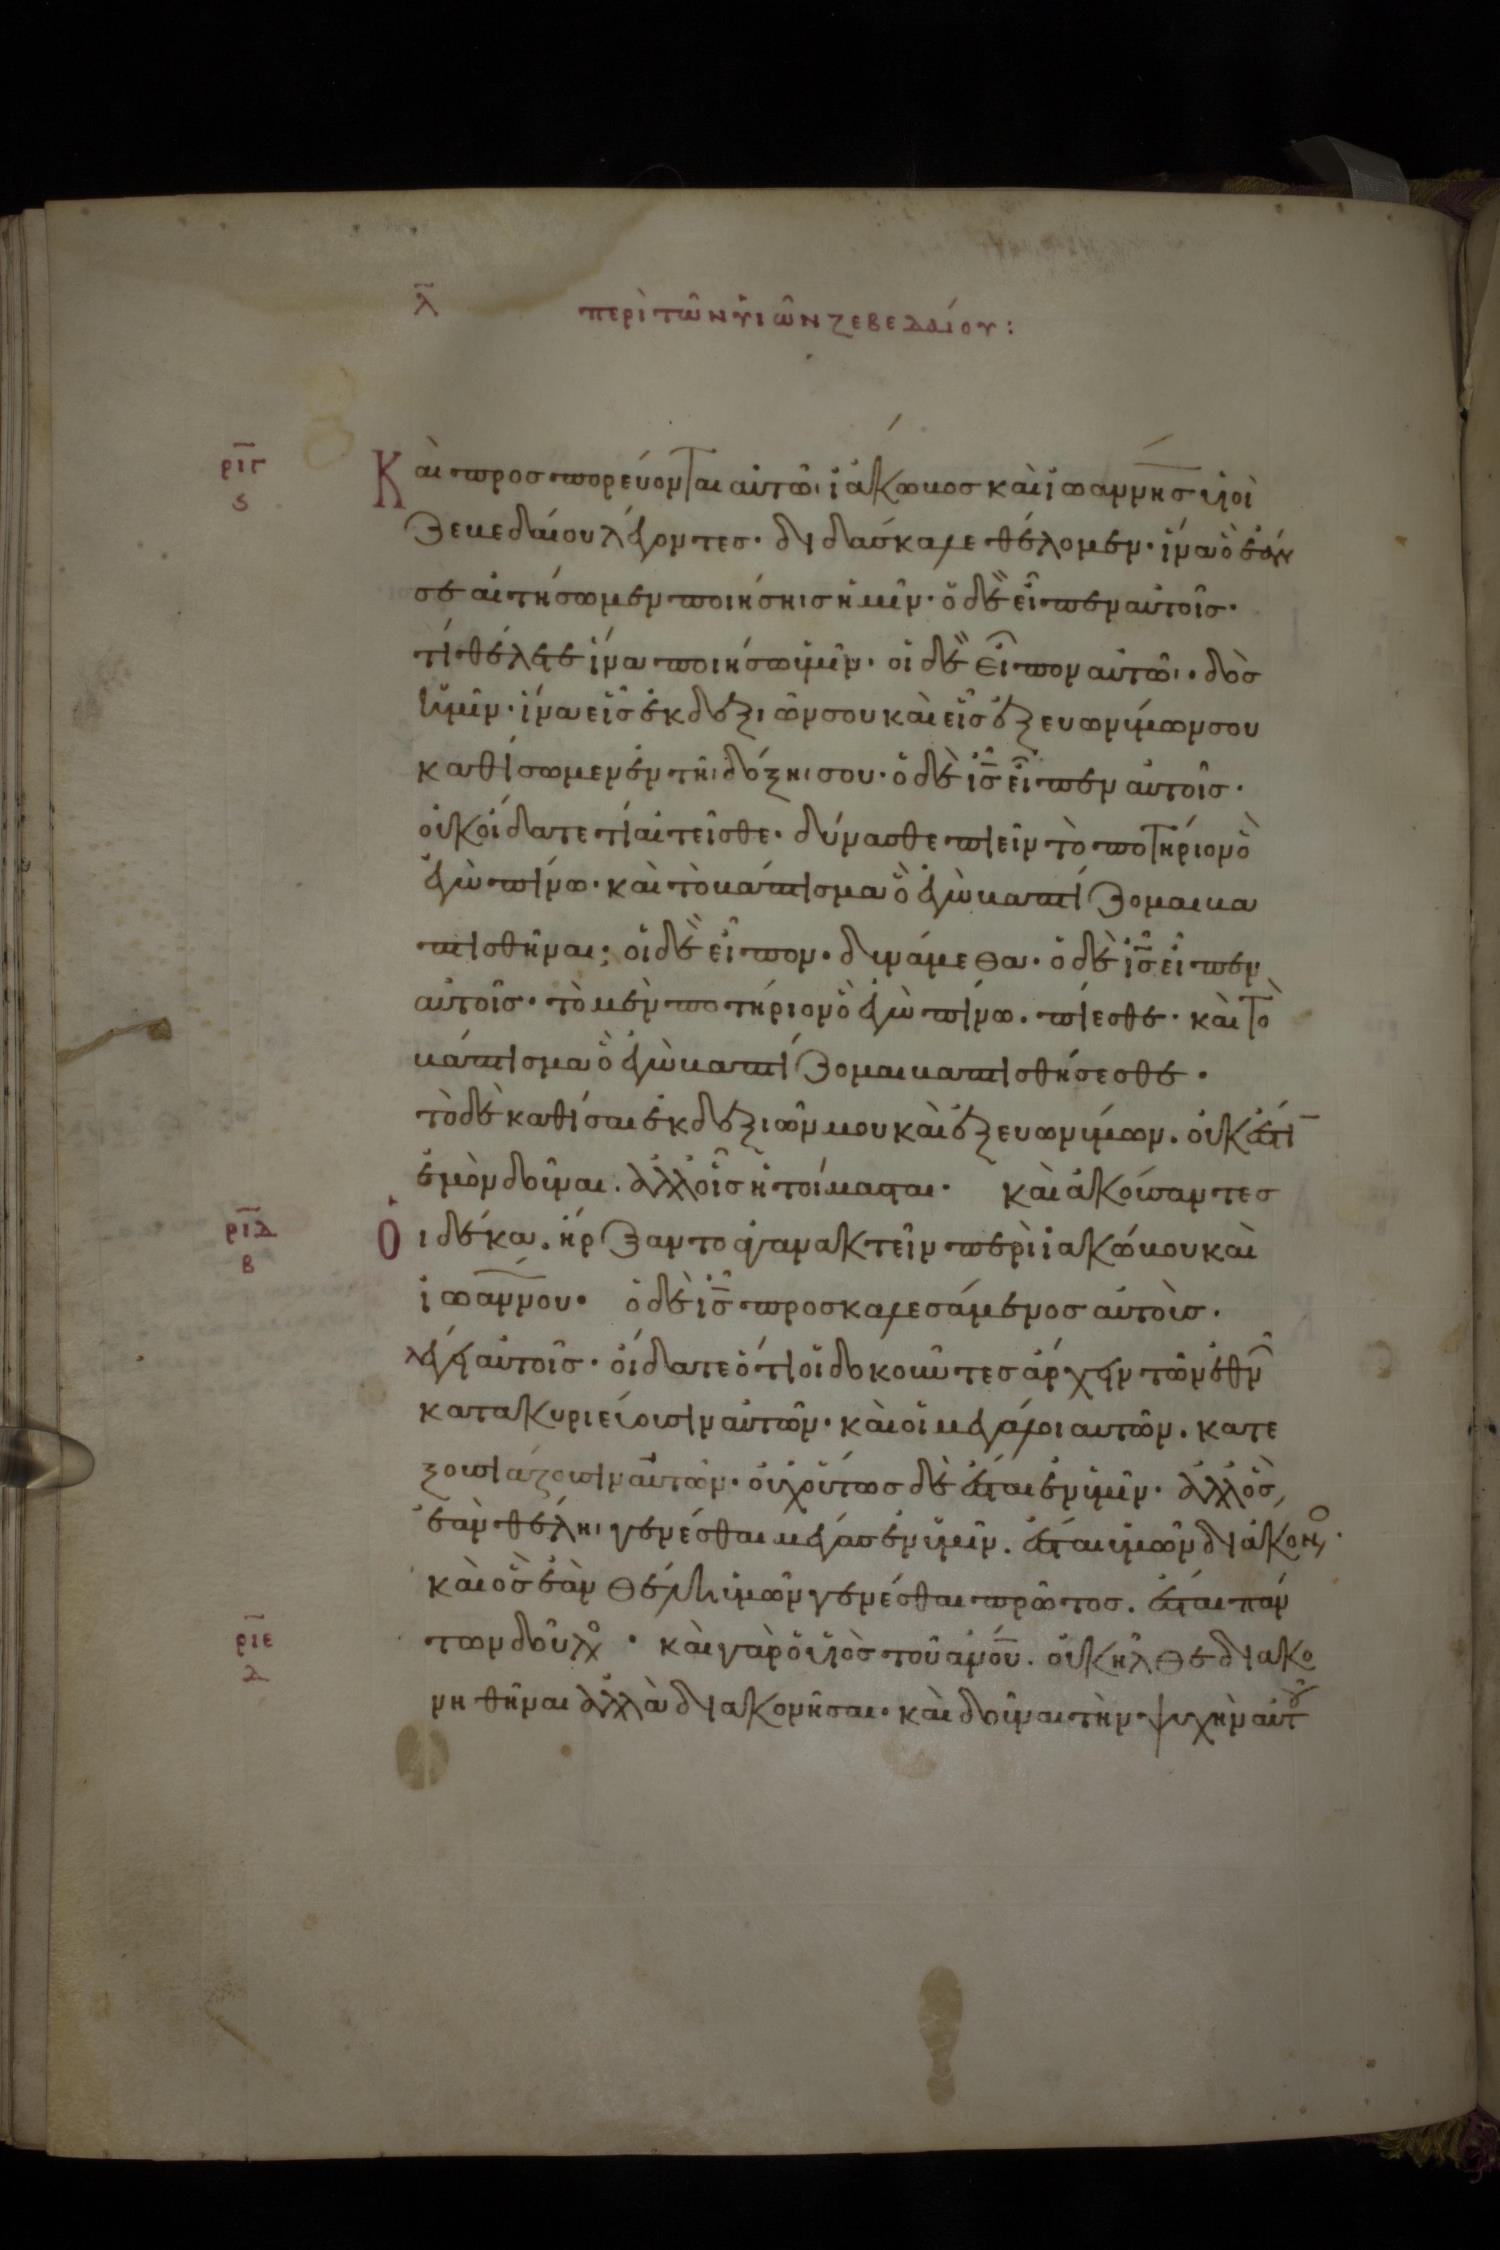 λ̅ περὶ τῶν υἱῶν ζεβεδαίου:
ρ̅ι̅γ̅
ς
Καὶ προσπορεύονται αὐτῶι ἰάκωβοσ καὶ ἰωάννησ υἱοὶ
ζεβεδαίου λέγοντεσ· διδάσκαλε θέλομεν· ἵνα ὃ ἐὰν
σε αἰτήσωμεν ποιήσηισ ἡμῖν· ὁ δὲ εἶπεν αὐτοῖσ·
τί θέλετε ἵνα ποιήσω ὑμῖν· οἱ δὲ εἶπον αὐτῶι· δὸσ
ἡμῖν· ἵνα εἷσ ἐκ δεξιῶν σου καὶ εἷσ ἐξ ευωνύμων σου
καθίσωμεν ἐν τῆι δόξηι σου· ὁ δὲ ι̅σ̅ εἶπεν αὐτοῖσ·
οὐκ οἴδατε τί αἰτεῖσθε· δύνασθε πιεῖν τὸ ποτήριον ὃ
ἐγὼ πίνω· καὶ τὸ βάπτισμα ὃ ἐγὼ βαπτίζομαι βα
πτισθῆναι; οἱ δὲ εἶπον· δυνάμεθα· ὁ δὲ ι̅σ̅ εἶπεν
αὐτοῖσ· τὸ μὲν ποτήριον ὃ ἐγὼ πίνω. πίεσθε· καὶ τὸ
βάπτισμα ὃ ἐγὼ βαπτίζομαι βαπτισθήσεσθε·
τὸ δὲ καθίσαι ἐκ δεξιῶν μου καὶ ἐξ ευωνύμων. οὐκ ἔστι
ἐμὸν δοῦναι. ἀλλ οἷσ ἡτοίμασται· καὶ ἀκούσαντεσ
ρ̅ι̅δ̅
β
Οἱ δέκα. ἤρξαντο ἀγανακτεῖν περὶ ἰακώβου καὶ
ἰωάννου· ὁ δὲ ι̅σ̅ προσκαλεσάμενοσ αὐτοὺσ.
λέγει αὐτοῖσ· οἴδατε ὅτι οἱ δοκοῦντεσ ἄρχειν τῶν ἐθν
κατακυριεύουσιν αὐτῶν· καὶ οἱ μεγάλοι αυτῶν. κατε
ξουσιάζουσιν αὐτῶν· οὐχ οὕτωσ δὲ ἔσται ἐν ὑμῖν· ἀλλ ὃσ
ἐὰν θέληι γενέσθαι μέγασ ἐν ὑμῖν. ἔσται ὑμῶν διάκονο·
καὶ ὃσ ἐὰν θέληι ὑμῶν γενέσθαι πρῶτοσ. ἔσται πάν
ρ̅ι̅ε̅
δ
των δοῦλο· καὶ γὰρ ὁ υἱὸσ τοῦ α̅ν̅ο̅υ̅. οὐκ ἦλθε διακο
νηθῆναι ἀλλὰ διακονῆσαι· καὶ δοῦναι τὴν ψυχὴν αὐτοῦ